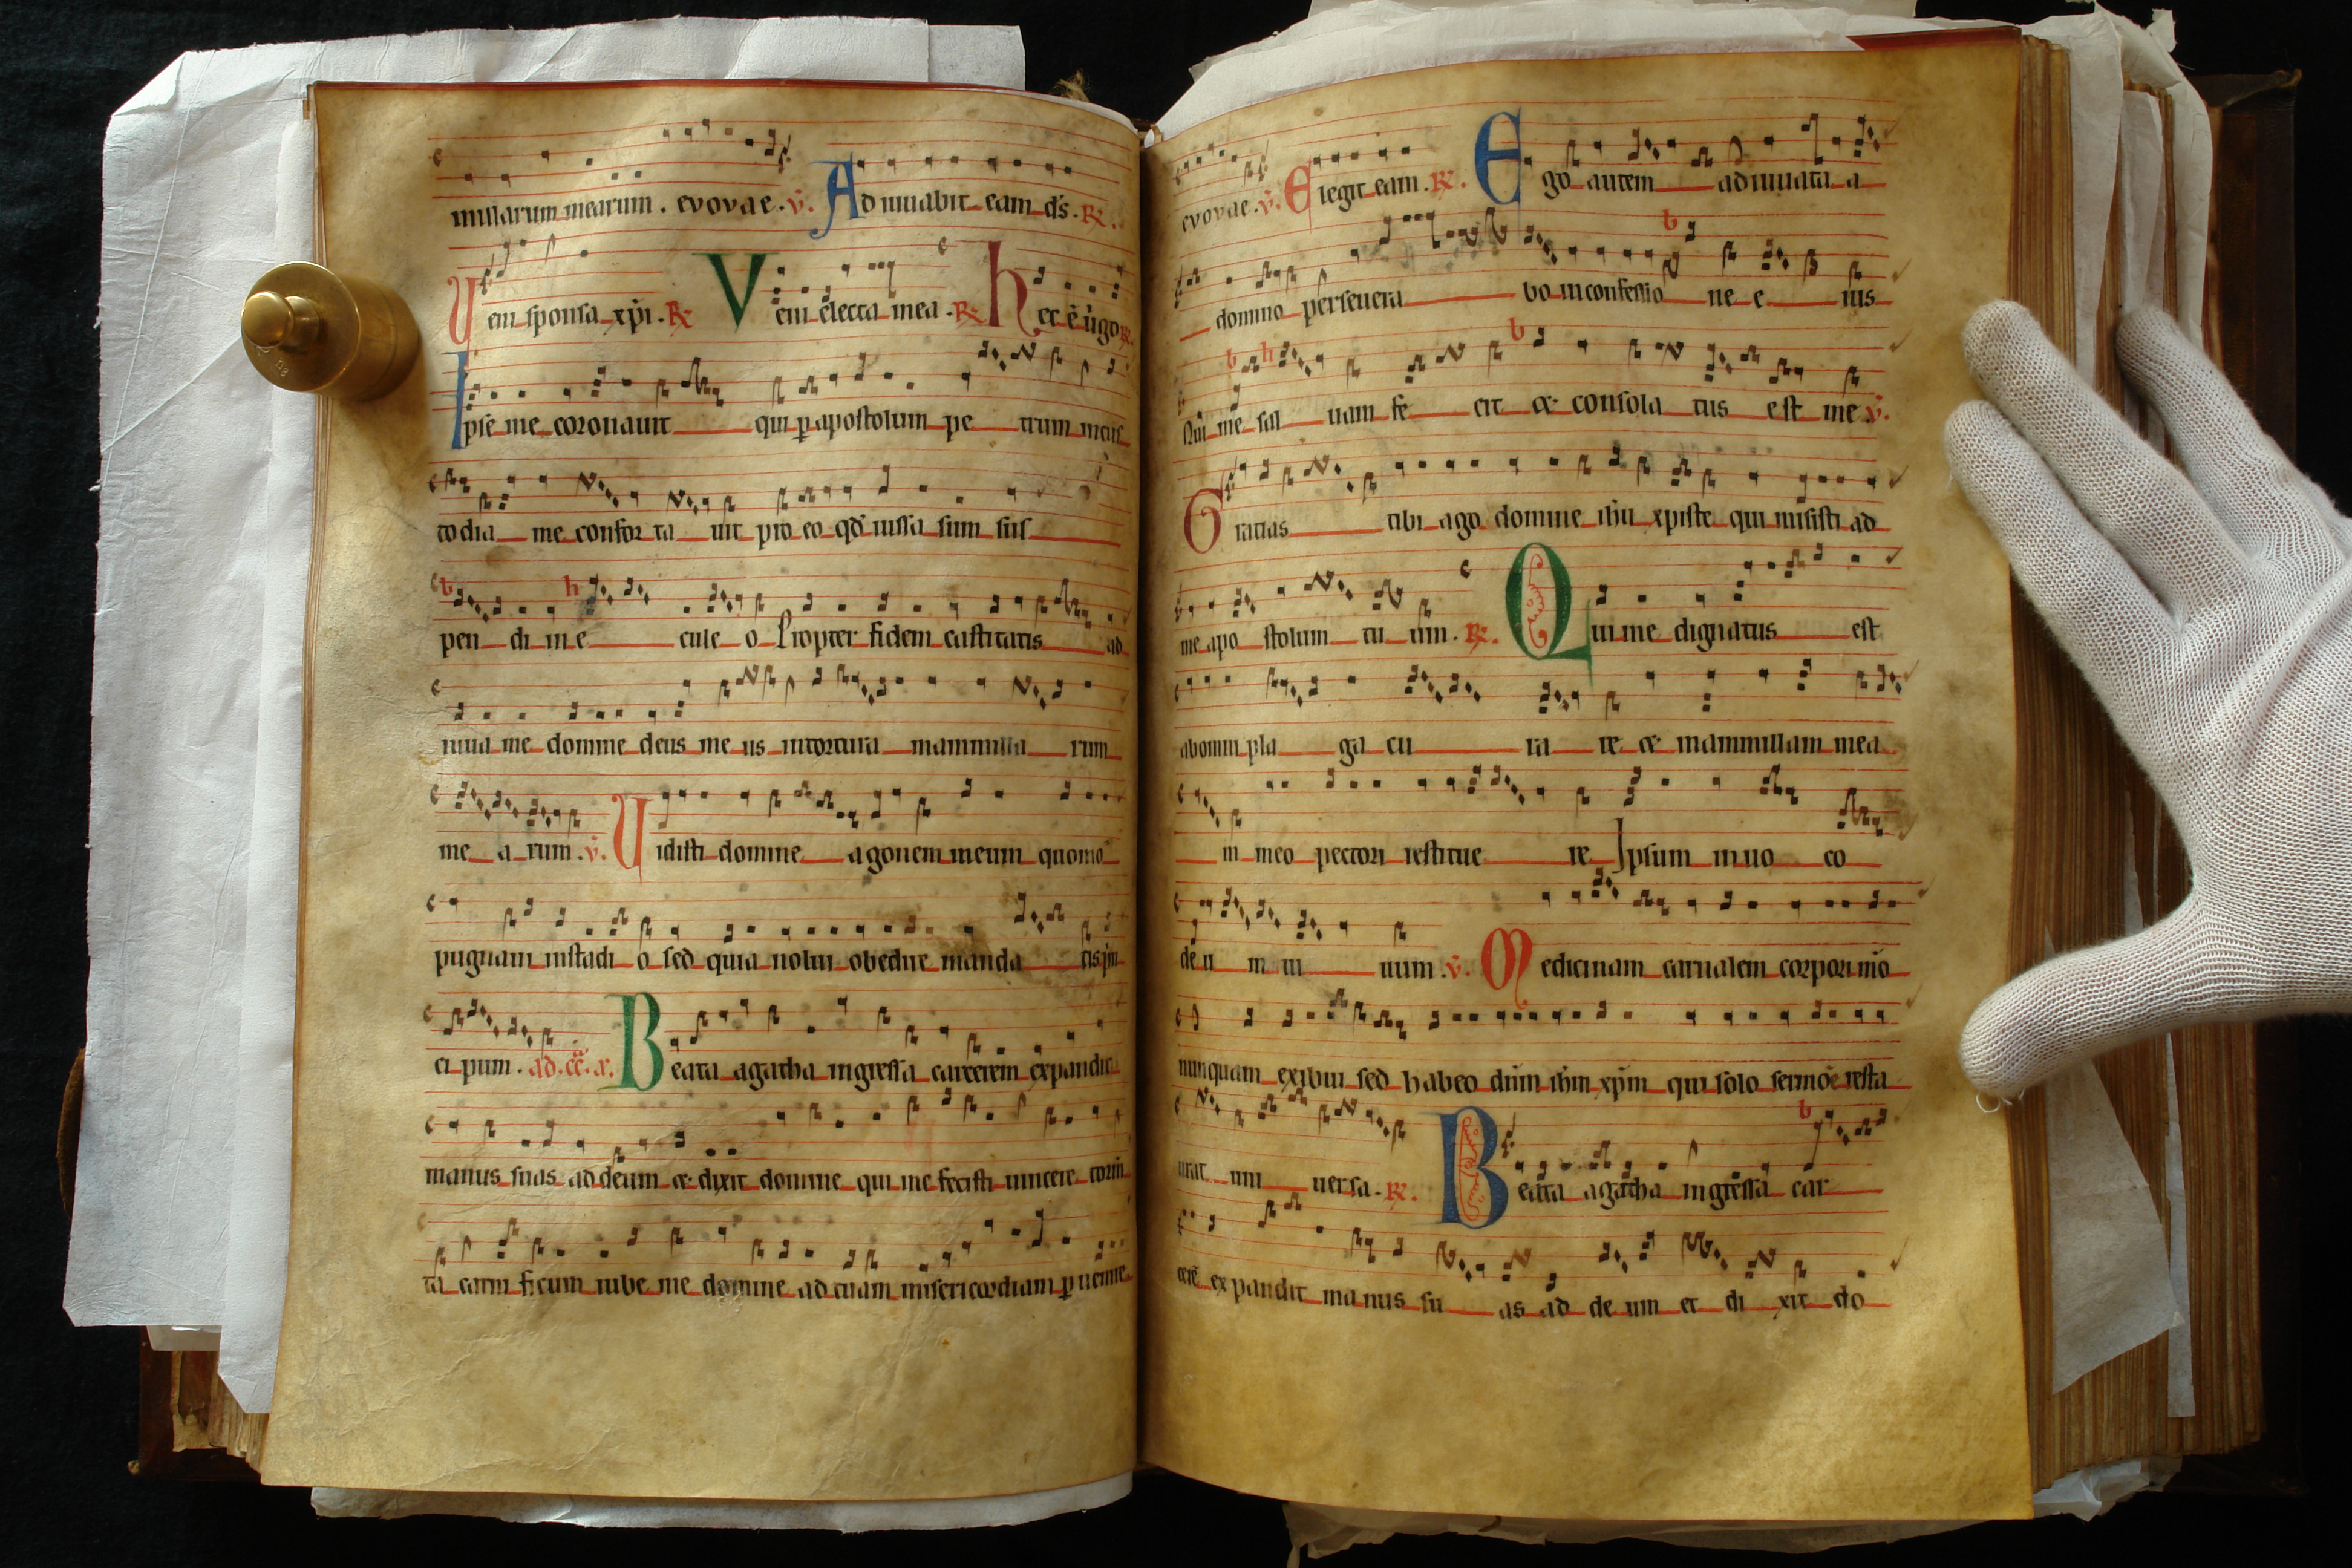 millarum mearum . evovae . v. Adiuuabit eam ds . R.
Ueni sponsa xpi . R. Veni electa mea . R. hec ē ũgo R.
Ipse me coronauit qui p apostolum petrum incus
todia me confortauit pro eo qd iussa sum sus
pendi in eculeo Propter fidem castitatis ad
iuua me domine deus meus intortura mammilla rum
mearum . v. Uidisti domine agonem meum quomo
pugnaui instadio sed quia nolui obedire mandatis
cipum . ad . Beata agatha ingressa carcerem expandit
manus suas ad deum et dixit domine qui me fecisti uincere torm
ta carnificum iube me domine ad tuam misericordiam puenire
evovae . v. Elegit eam . R. Ego autem adiuuata a
domino perseuerabo inconfessione eius
Qui me saluam fecit et consolatus est me v.
Gratias tibi ago domine ihu xpiste qui misisti ad
me apostolum tuum . R. Qui me dignatus est
abomni plaga curare et mammillam mea
m meo pectori restituere Ipsum inuoco
deum uiuum . v. Medicinam carnalem corpori mō
nunquam exibui sed habeo dūm ihm xpm qui solo sermoē resta
urat uniuersa . R. Beata agatha ingressa car
cerē expandit manus suas ad deum et dixit do